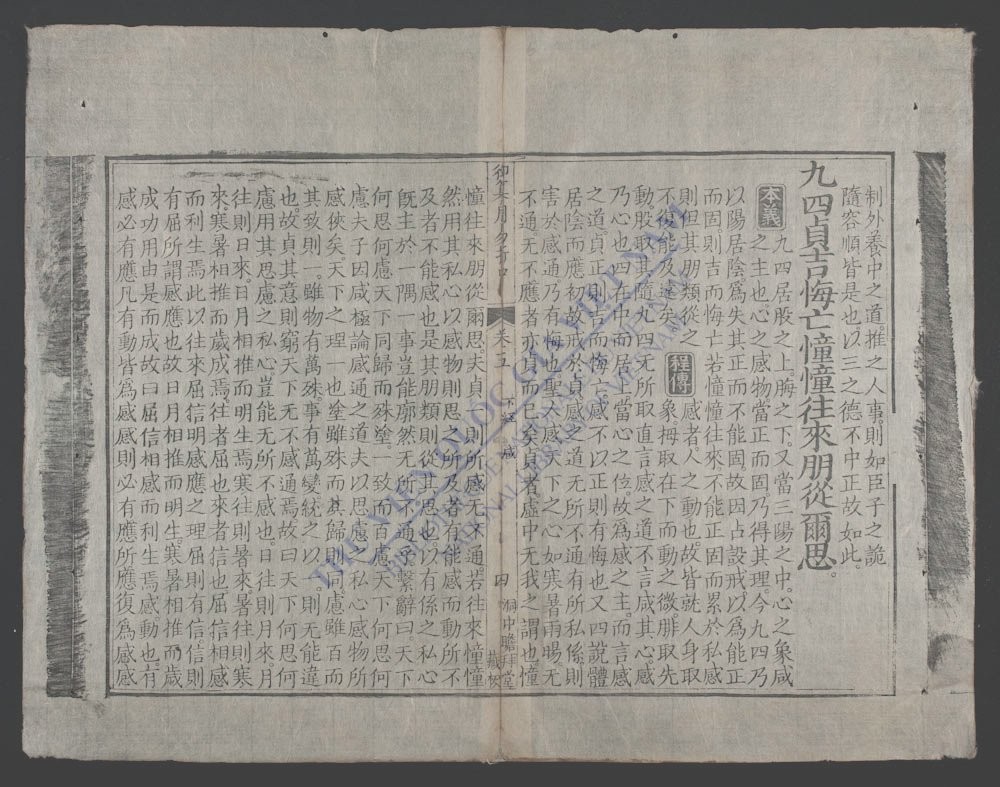 制外養中之道推之人事則如臣子之詭
隨容順皆是也以三之德不中正故如此
九四貞吉悔亡憧憧往來朋從爾思
本義 九四居股之上脢之下又當三陽之中心之象咸
之主也心之感物當正而固乃得其理今九四乃
以陽居陰爲失其正而不能固故因占設戒以爲能正
而固則吉而悔亡若憧憧往來不能正固而累於私感
則但其朋類從之
不復能及遠矣 程傳 感者人之動也故皆就人身取
象拇取在下而動之微腓取先
動股取其隨九四无所取直言感之道不言咸其心感
乃心也四在中而居上當心之位故爲感之主而言感
之道貞正則吉而悔亡感不以正則有悔也又四說體
居陰而應初故戒於貞感之道无所不通有所私係則
害於感通乃有悔也聖人感天下之心如寒暑雨暘无
不通无不應者亦貞而已矣貞者虛中无我之謂也憧
卷五 下經 咸 四
憧往來朋從爾思夫貞一則所感无不通若往來憧憧
然用其私心以感物則思之所及者有能感而動所不
及者不能感也是其朋類則從其思也以有係之私心
既主於一隅一事豈能廓然无所不通乎繫辭曰天下
何思何慮天下同歸而殊塗一致而百慮天下何思何
慮夫子因咸極論感通之道夫以思慮之私心感物所
感狹矣天下之理一也塗雖殊而其歸則同慮雖百而
其致則一雖物有萬殊事有萬變統之以一則无能違
也故貞其意則窮天下无不感通焉故曰天下何思何
慮用其思慮之私心豈能无所不感也日往則月來月
往則日來日月相推而明生焉寒往則暑來暑往則寒
來寒暑相推而歲成焉往者屈也來者信也屈信相感
而利生焉此以往來屈信明感應之理屈則有信信則
有屈所謂感應也故日月相推而明生寒暑相推而歲
成功用由是而成故曰屈信相感而利生焉感動也有
感必有應凡有動皆爲感感則必有應所應復爲感感